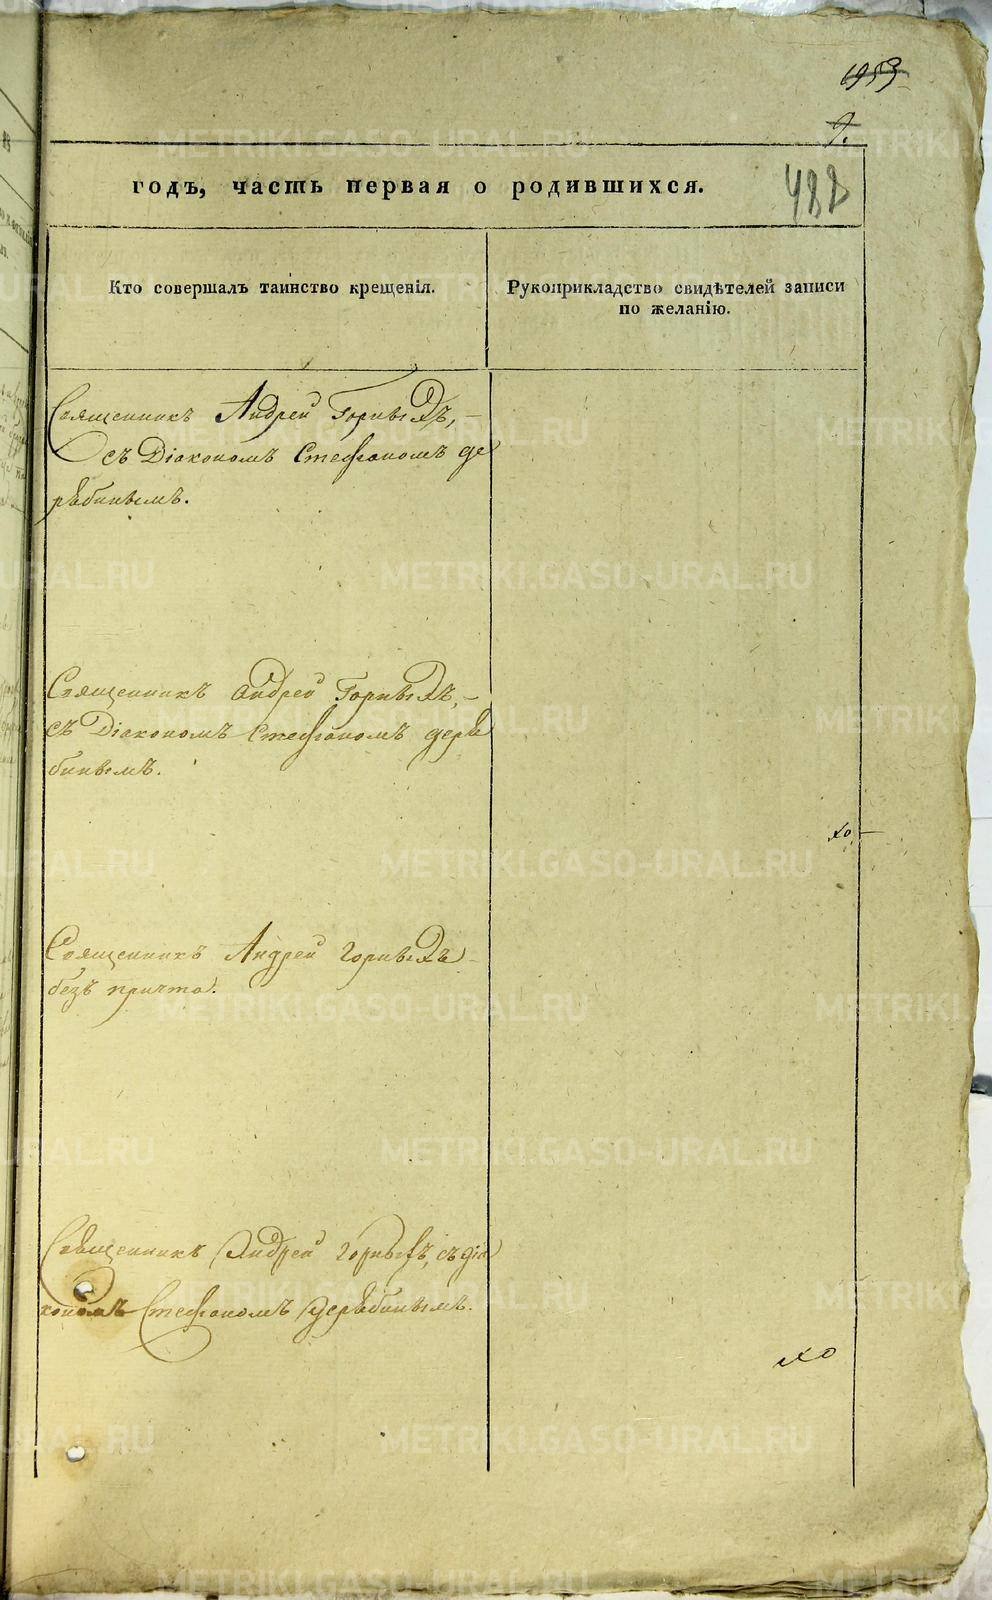 1953
9.
годъ, часть первая о родившихся.
488
Кто совершалъ таинство крещенія.
Рукоприкладство свидѣтелей записи
по желанію.
Священникъ Андрей Горныхъ,
съ Діакономъ Стефаномъ де
рѣбинымъ.
Священникъ Андрей Горныхъ,
съ Діакономъ Стефаномъ дерѣ
бинымъ.
хо
Священникъ Андрей Горныхъ
безъ причта.
Священникъ Андрей Горныхъ, съ діа
кономъ Стефаномъ Дерѣбинымъ.
хо
METRIKI.GASO-URAL.RU